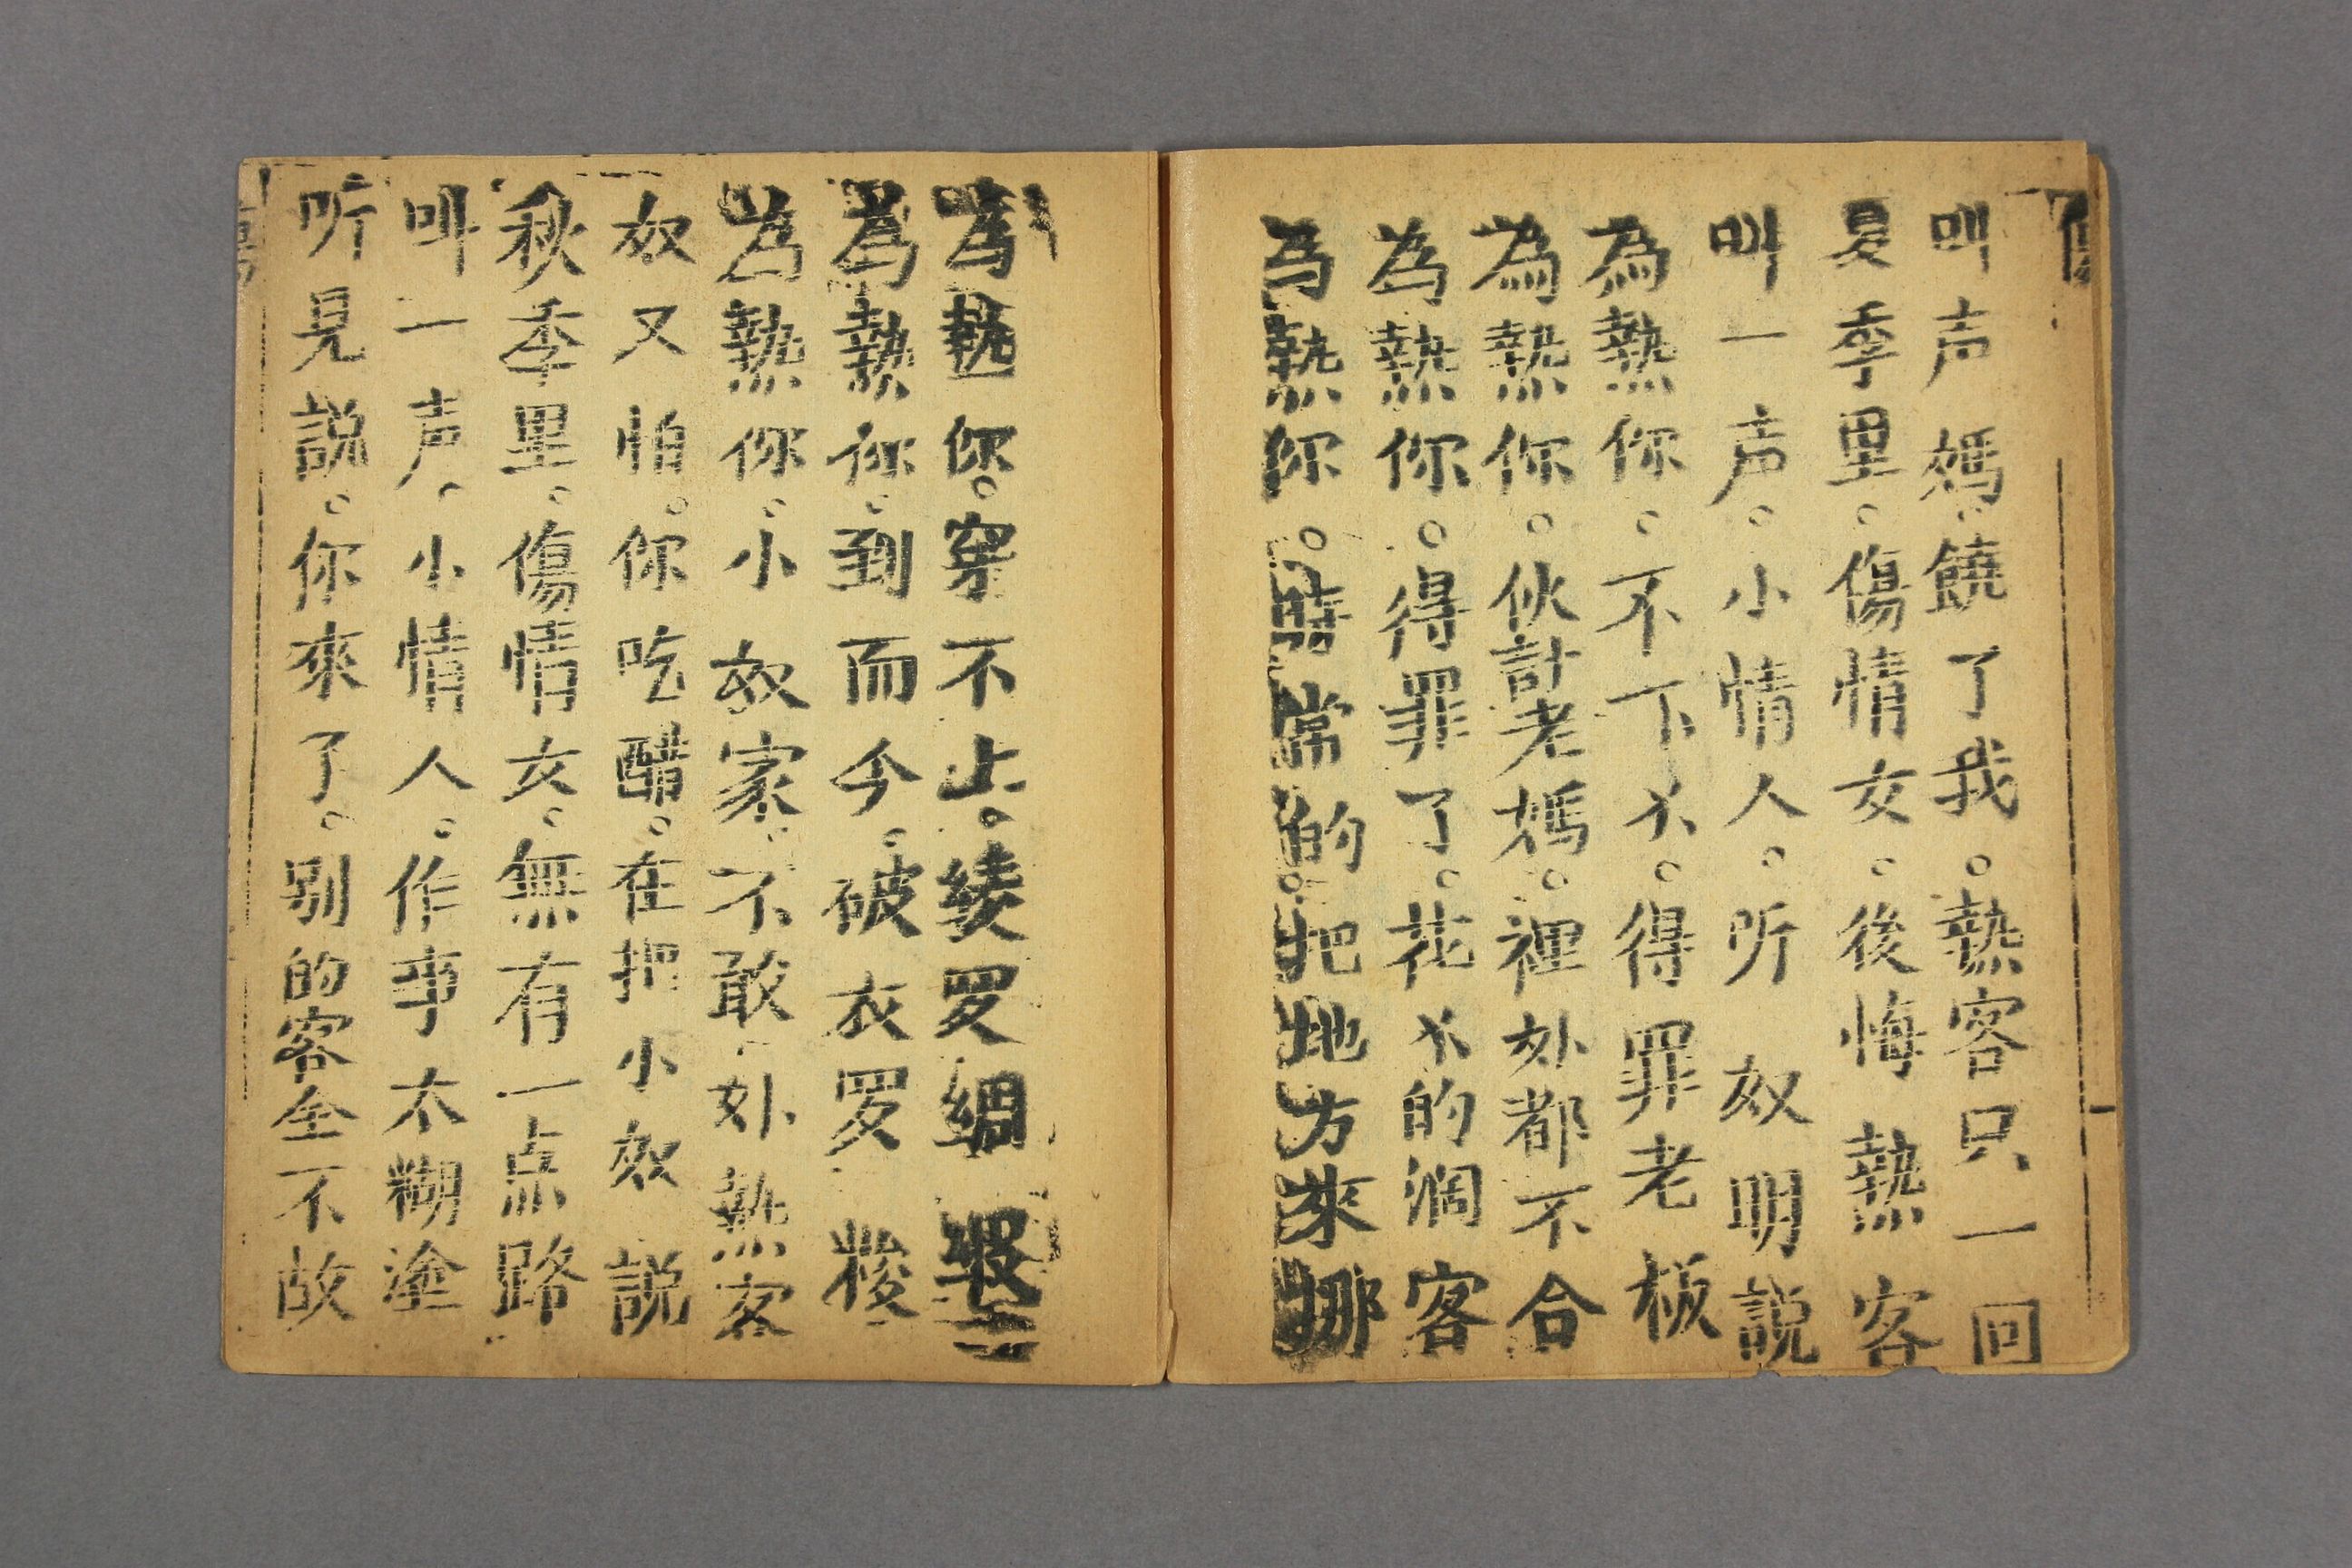 叫声媽。饒了我。熱客只一回
夏季里。傷情女。後悔熱客
叫一声。小情人。听奴明説
為熱你。不下〤。得罪老板
為熱你。伙計老媽。裡外都不合
為熱你。得罪了。花〤的濶客
為熱你。時常的。把地方來挪
為熱你。穿不上。綾罗綢
為熱你。到而今。破衣罗
為熱你。小奴家。不敢外熱客
奴又怕。你吃醋。在把小奴説
秋季里。傷情女。無有一点路
叫一声。小情人。作事太糊塗
听見説。你來了。别的客全不故